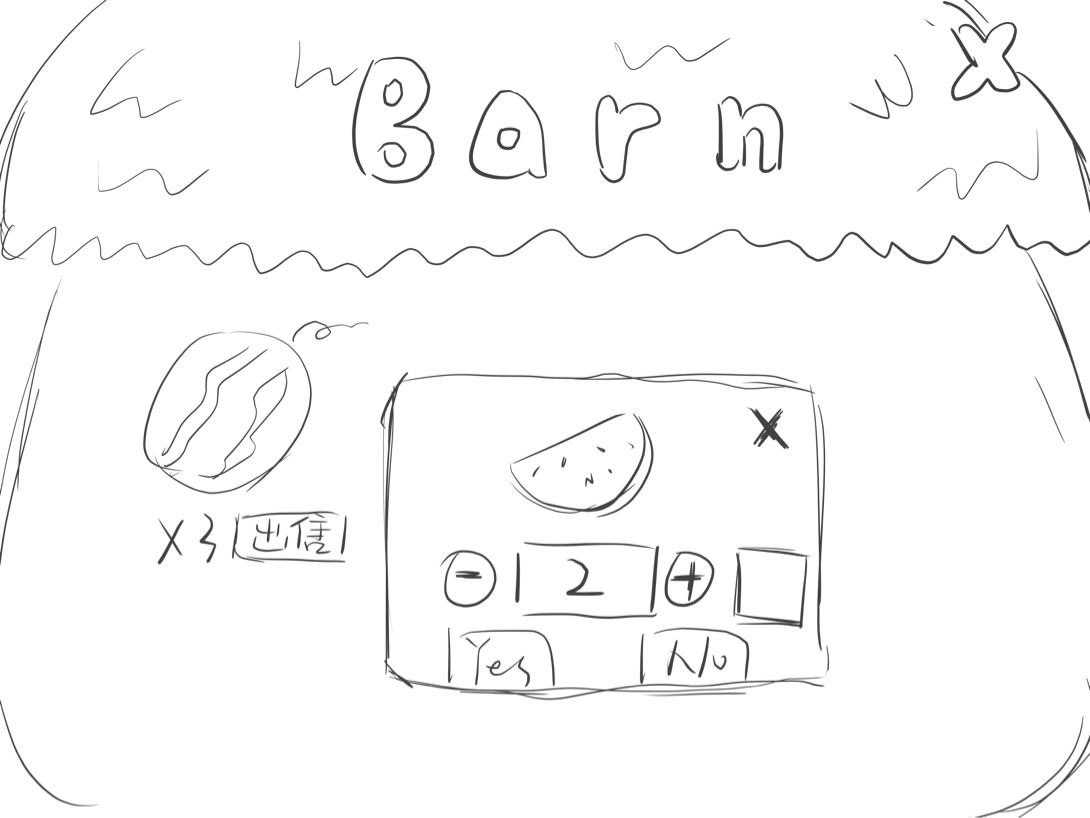 Barn
X
X
x3 出售
- 2 +
Yes No